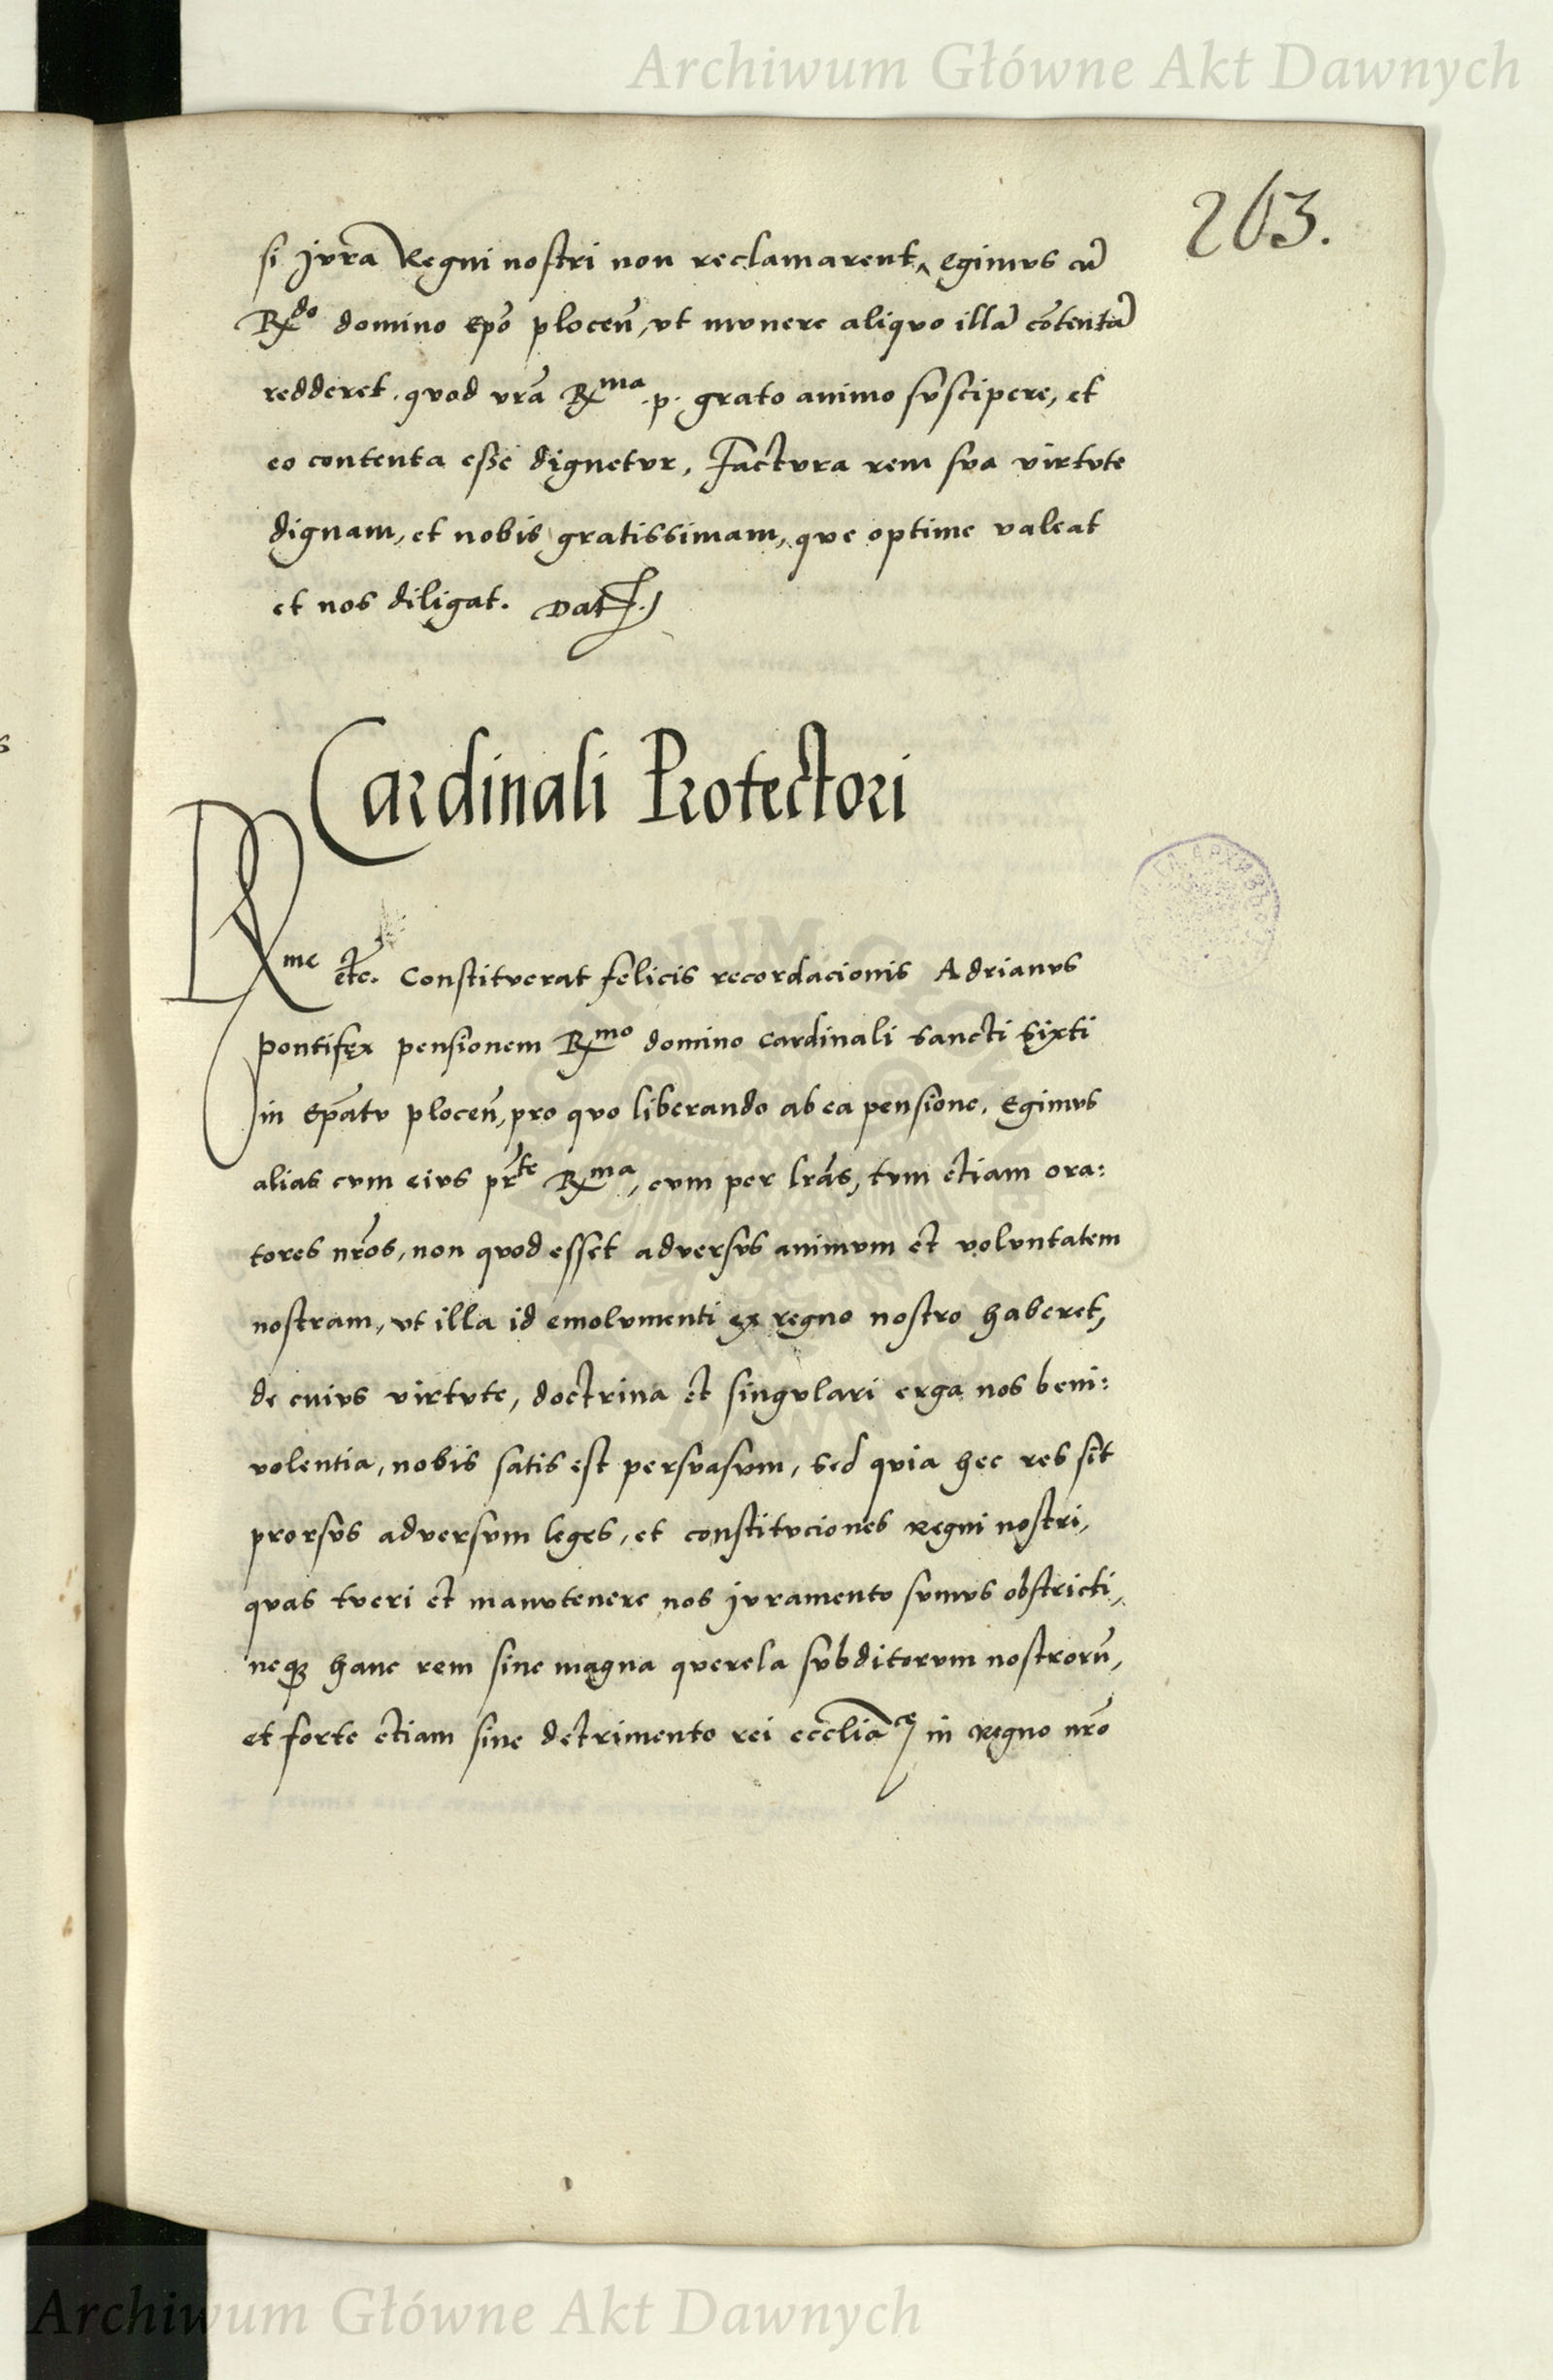 Archiwum Główne Akt Dawnych
263.
si jvra Regni nostri non reclamarent, Egimvs cū
Rdo domino Epō plocen̄, vt mvnere aliqvo illā cōtentā
redderet. qvod vrā Rma .p. grato animo svscipere, et
eo contenta esse dignetvr, Factvra rem sva virtvte
dignam, et nobis gratissimam, qve optime valeat
et nos diligat. Dat.
Cardinali Protectori
Rme etc. Constitverat felicis recordacionis Adrianvs
pontifex pensionem Rmo domino Cardinali sancti Sixti
in Ep̄atv plocen̄, pro qvo liberando ab ea pensione, Egimvs
alias cvm eivs pr̄te Rma, cvm per lrās, tvm etiam ora:
tores nrōs, non qvod esset adversvs animvm et volvntatem
nostram, vt illa id emolvmenti ex regno nostro haberet,
de cvivs virtvte, doctrina et singvlari erga nos beni:
volentia, nobis satis est persvasvm, sed qvia hec res sit
prorsvs adversvm leges, et constitvciones Regni nostri,
qvas tveri et manvtenere nos jvramento svmvs obstricti,
neqȝ hanc rem sine magna qverela svbditorvm nostrorū,
et forte etiam sine detrimento rei eccliācę in Regno nrō
Archiwum Główne Akt Dawnych